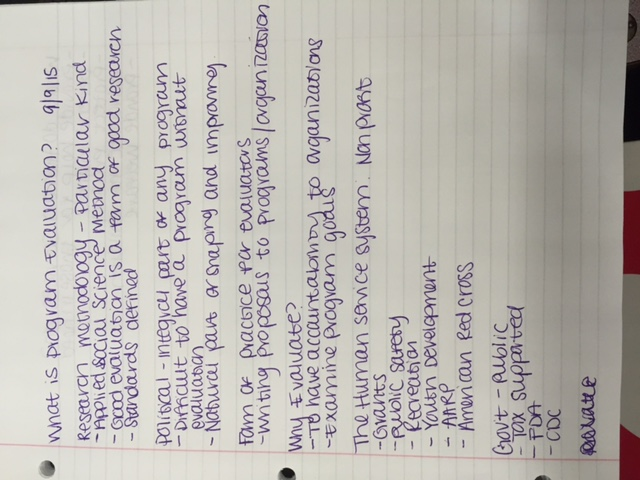 What is program Evaluation? 9/9/15
Research methodology - Particular kind
- Applied social science method
- Good evaluation is a form of good research
- standards defined
Political - Integral part of any program
- Difficult to have a program without
evaluation
- Natural part of shaping and improving
Form of practice for evaluators
- writing proposals to programs/organization
Why Evaluate?
- To have accountability to organizations
- Examine program goals
The Human service system. Non profit
- Grants
- Public safety
- Recreation
- Youth Development
- AARP
- American Red Cross
Gov't - Public
- Tax supported
- FDA
- CDC